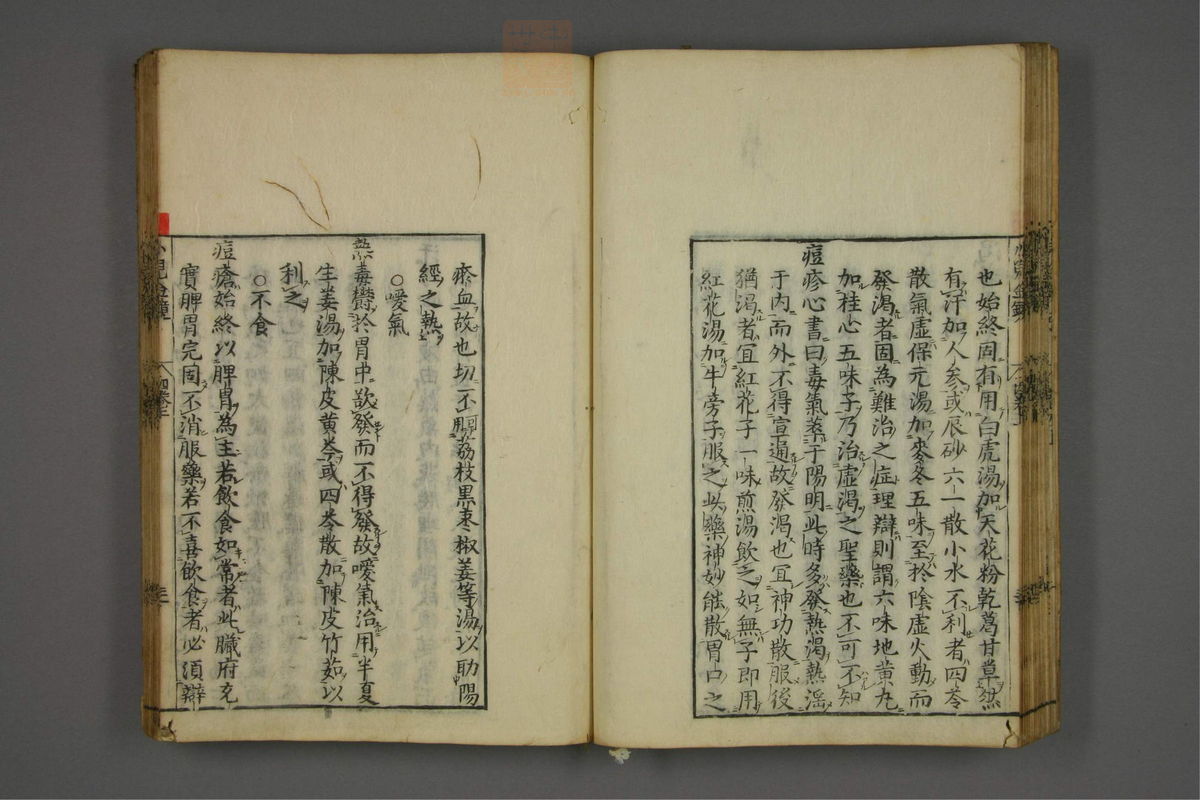 也始終固有用白虎湯加天花粉乾葛甘草然
有汗加人参或辰砂六一散小水不利者四苓
散氣虛保元湯加麥冬五味至於陰虛火動而
發渴者固為難治之症理辯則謂六味地黄丸
加桂心五味子乃治虛渴之聖藥也不可不知
痘疹心書曰毒氣惹于陽明此時多發熱渴熱滛
于内而外不得宣通故發渴也冝神功散服後
猶渴者冝紅花子一味煎湯飲之如無子即用
紅花湯加牛旁子服之此藥神妙能散胃口之
瘀血故也切不可用荔枝黒枣椒姜等湯以助陽
經之熱
○噯氣
熱毒欝於胃中欲發而不得發故噯氣治用半夏
生姜湯加陳皮黄芩或四苓散加陳皮竹茹以
利之
○不食
痘瘡始終以脾胃為主若飲食如常者此臓府充
實脾胃完固不消服藥若不喜飲食者必須辯